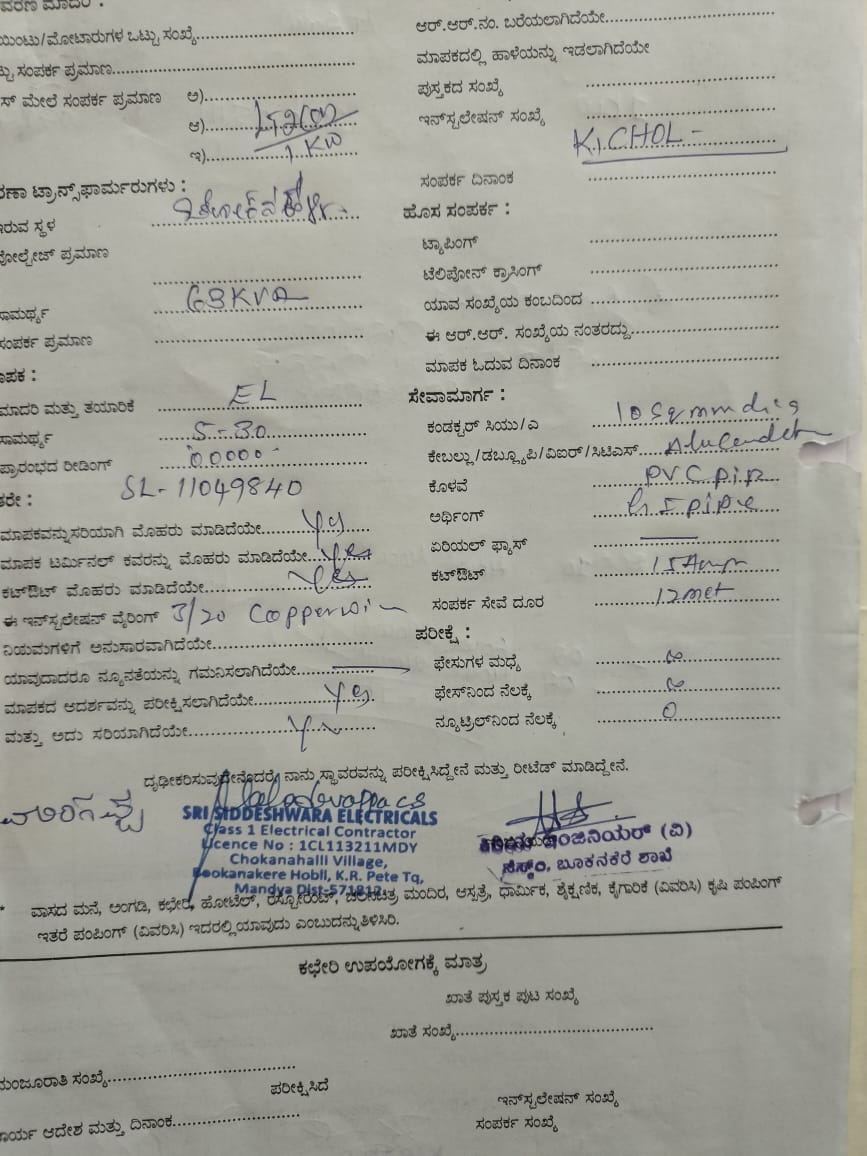 ಆರ್.ಆರ್.ನಂ. ಬರೆಯಲಾಗಿದೆಯೇ
ಮಾಪಕದಲ್ಲಿ ಹಾಳೆಯನ್ನು ಇಡಲಾಗಿದೆಯೇ
ಪುಸ್ತಕದ ಸಂಖ್ಯೆ
ಇನ್‌ಸ್ಟಲೇಷನ್ ಸಂಖ್ಯೆ
ಸಂಪರ್ಕ ದಿನಾಂಕ
ಹೊಸ ಸಂಪರ್ಕ :
ಟ್ಯಾಪಿಂಗ್
ಟೆಲಿಪೋನ್ ಕ್ರಾಸಿಂಗ್
ಯಾವ ಸಂಖ್ಯೆಯ ಕಂಬದಿಂದ
ಈ ಆರ್.ಆರ್. ಸಂಖ್ಯೆಯ ನಂತರದ್ದು
ಮಾಪಕ ಓದುವ ದಿನಾಂಕ
ಸೇವಾಮಾರ್ಗ :
ಕಂಡಕ್ಟರ್ ಸಿಯು/ಎ 10 sqmm
ಕೇಬಲ್ಲು/ಡಬ್ಲ್ಯೂಪಿ/ವಿಐರ್/ಸಿಟಿಎಸ್
ಕೊಳವೆ PVC pip
ಅರ್ಥಿಂಗ್ G I pipe
ಏರಿಯಲ್ ಫ್ಯಾಸ್
ಕಟ್‌ಔಟ್ 15 Amp
ಸಂಪರ್ಕ ಸೇವೆ ದೂರ 12 met
ಪರೀಕ್ಷೆ :
ಫೇಸುಗಳ ಮಧ್ಯೆ ∞
ಫೇಸ್‌ನಿಂದ ನೆಲಕ್ಕೆ ∞
ನ್ಯೂಟ್ರಿಲ್‌ನಿಂದ ನೆಲಕ್ಕೆ 0
ಯಿಂಟು/ಮೋಟಾರುಗಳ ಒಟ್ಟು ಸಂಖ್ಯೆ
ಸಂಪರ್ಕ ಪ್ರಮಾಣ
ಮೇಲೆ ಸಂಪರ್ಕ ಪ್ರಮಾಣ ಅ)
ಆ)
ಇ) 1 KW
ಟ್ರಾನ್ಸ್‌ಫಾರ್ಮರುಗಳು :
ಇರುವ ಸ್ಥಳ
ಪ್ರಮಾಣ
ಸಾಮರ್ಥ್ಯ 63KVA
ಸಂಪರ್ಕ ಪ್ರಮಾಣ
ಮಾದರಿ ಮತ್ತು ತಯಾರಿಕೆ EL
ಸಾಮರ್ಥ್ಯ 5-30
ಪ್ರಾರಂಭದ ರೀಡಿಂಗ್ 00000
SL-11049840
ಮಾಪಕವನ್ನು ಸರಿಯಾಗಿ ಮೊಹರು ಮಾಡಿದೆಯೇ Yes
ಮಾಪಕ ಟರ್ಮಿನಲ್ ಕವರನ್ನು ಮೊಹರು ಮಾಡಿದೆಯೇ Yes
ಕಟ್‌ಔಟ್ ಮೊಹರು ಮಾಡಿದೆಯೇ Yes
ಈ ಇನ್‌ಸ್ಟಲೇಷನ್ ವೈರಿಂಗ್ 3/20 Copper
ನಿಯಮಗಳಿಗೆ ಅನುಸಾರವಾಗಿದೆಯೇ
ಯಾವುದಾದರೂ ನ್ಯೂನತೆಯನ್ನು ಗಮನಿಸಲಾಗಿದೆಯೇ
ಮಾಪಕದ ಆದರ್ಶವನ್ನು ಪರೀಕ್ಷಿಸಲಾಗಿದೆಯೇ Yes
ಮತ್ತು ಅದು ಸರಿಯಾಗಿದೆಯೇ Yes
ದೃಢೀಕರಿಸುವುದೇನೆಂದರೆ, ನಾನು ಸ್ಥಾವರವನ್ನು ಪರೀಕ್ಷಿಸಿದ್ದೇನೆ ಮತ್ತು ರೀಟೆಡ್ ಮಾಡಿದ್ದೇನೆ.
SRI SIDDESHWARA ELECTRICALS
Class 1 Electrical Contractor
Licence No : 1CL113211MDY
Chokanahalli Village,
Bookanakere Hobli, K.R. Pete Tq,
Mandya Dist-571812
ಇಂಜಿನಿಯರ್ (ವಿ)
ಸೆಸ್ಕಾಂ, ಬೂಕನಕೆರೆ ಶಾಖೆ
* ವಾಸದ ಮನೆ, ಅಂಗಡಿ, ಕಛೇರಿ, ಹೋಟೆಲ್, ರೆಸ್ಟೋರೆಂಟ್, ಚಲನಚಿತ್ರ ಮಂದಿರ, ಆಸ್ಪತ್ರೆ, ಧಾರ್ಮಿಕ, ಶೈಕ್ಷಣಿಕ, ಕೈಗಾರಿಕೆ (ವಿವರಿಸಿ) ಕೃಷಿ ಪಂಪಿಂಗ್
ಇತರೆ ಪಂಪಿಂಗ್ (ವಿವರಿಸಿ) ಇದರಲ್ಲಿ ಯಾವುದು ಎಂಬುದನ್ನು ತಿಳಿಸಿರಿ.
ಕಛೇರಿ ಉಪಯೋಗಕ್ಕೆ ಮಾತ್ರ
ಖಾತೆ ಪುಸ್ತಕ ಪುಟ ಸಂಖ್ಯೆ
ಖಾತೆ ಸಂಖ್ಯೆ
ಮಂಜೂರಾತಿ ಸಂಖ್ಯೆ
ಪರೀಕ್ಷಿಸಿದೆ
ಇನ್‌ಸ್ಟಲೇಷನ್ ಸಂಖ್ಯೆ
ಕಾರ್ಯ ಆದೇಶ ಮತ್ತು ದಿನಾಂಕ
ಸಂಪರ್ಕ ಸಂಖ್ಯೆ